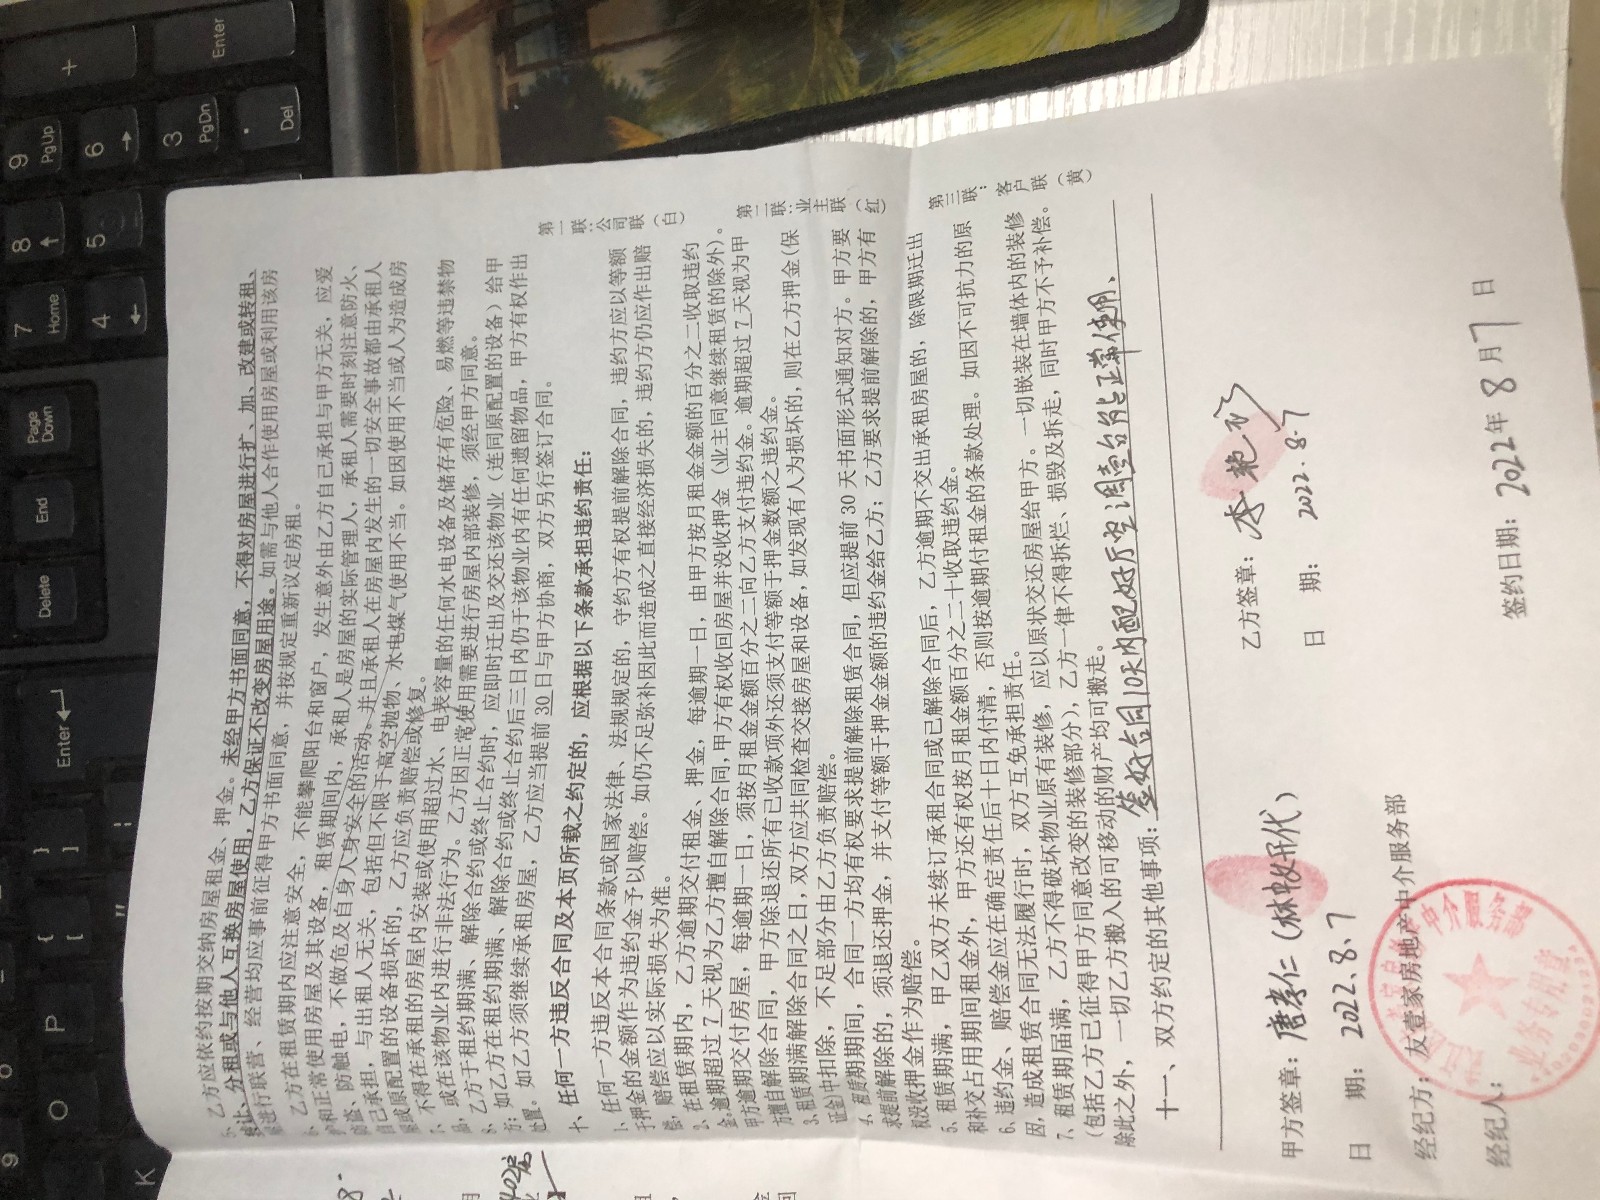 5、乙方应依约按期交纳房屋租金、押金。未经甲方书面同意，不得对房屋进行扩、加、改建或转租、
转让、分租或与他人互换房屋使用，乙方保证不改变房屋用途。如需与他人合作使用房屋或利用该房
屋进行联营、经营均应事前征得甲方书面同意，并按规定重新议定房租。
6、乙方在租赁期内应注意安全，不能攀爬阳台和窗户，发生意外由乙方自己承担与甲方无关，应爱
护和正常使用房屋及其设备，租赁期间内，承租人是房屋的实际管理人，承租人需要时刻注意防火、
防盗、防触电，不做危及自身人身安全的活动。并且承租人在房屋内发生的一切安全事故都由承租人
自己承担，与出租人无关，包括但不限于高空抛物、水电煤气使用不当。如因使用不当或人为造成房
屋或原配置的设备损坏的，乙方应负责赔偿或修复。
7、不得在承租的房屋内安装或使用超过水、电表容量的任何水电设备及储存有危险、易燃等违禁物
品，或在该物业内进行非法行为。乙方因正常使用需要进行房屋内部装修，须经甲方同意。
8、乙方于租约期满、解除合约或终止合约时，应即时迁出及交还该物业（连同原配置的设备）给甲
方；如乙方在租约期满、解除合约或终止合约后三日内仍于该物业内有任何遗留物品，甲方有权作出
处置。如乙方须继续承租房屋，乙方应当提前 30 日与甲方协商，双方另行签订合同。
十、任何一方违反合同及本页所载之约定的，应根据以下条款承担违约责任：
1、任何一方违反本合同条款或国家法律、法规规定的，守约方有权提前解除合同，违约方应以等额
于押金的金额作为违约金予以赔偿。如仍不足弥补因此而造成之直接经济损失的，违约方仍应作出赔
偿，赔偿应以实际损失为准。
2、在租赁期内，乙方逾期交付租金、押金，每逾期一日，由甲方按月租金金额的百分之二收取违约
金。逾期超过 7 天视为乙方擅自解除合同，甲方有权收回房屋并没收押金（业主同意继续租赁的除外）。
甲方逾期交付房屋，每逾期一日，须按月租金金额百分之二向乙方支付违约金。逾期超过 7 天视为甲
方擅自解除合同，甲方除退还所有已收款项外还须支付等额于押金数额之违约金。
3、租赁期满解除合同之日，双方应共同检查交接房屋和设备，如发现有人为损坏的，则在乙方押金（保
证金）中扣除，不足部分由乙方负责赔偿。
4、租赁期间，合同一方均有权要求提前解除租赁合同，但应提前 30 天书面形式通知对方。甲方要
求提前解除的，须退还押金，并支付等额于押金金额的违约金给乙方；乙方要求提前解除的，甲方有
权没收押金作为赔偿。
5、租赁期满，甲乙双方未续订承租合同或已解除合同后，乙方逾期不交出承租房屋的，除限期迁出
和补交占用期间租金外，甲方还有权按月租金额百分之二十收取违约金。
6、违约金、赔偿金应在确定责任后十日内付清，否则按逾期付租金的条款处理。如因不可抗力的原
因，造成租赁合同无法履行时，双方互免承担责任。
7、租赁期届满，乙方不得破坏物业原有装修，应以原状交还房屋给甲方。一切嵌装在墙体内的装修
（包括乙方已征得甲方同意改变的装修部分），乙方一律不得拆烂、损毁及拆走，同时甲方不予补偿。
除此之外，一切乙方搬入的可移动的财产均可搬走。
十一、双方约定的其他事项：签好合同10天内配好厅空调壹台能正常使用、
第一联：公司联（白）
第二联：业主联（红）
第三联：客户联（黄）
甲方签章：唐孝仁（林 代）
乙方签章：李艳
日 期：2022.8.7
日 期：2022.8.7
经纪方：友壹家房地产中介服务部
经纪人：
签约日期：2022年8月7日
中介服务部
业务专用章
+
9 PgUp
6 →
3 PgDn
Enter
. Del
8 ↑
5
7 Home
4 ←
Page Down
End
Delete
Enter
} ]
{ [
P
O
K
9
"